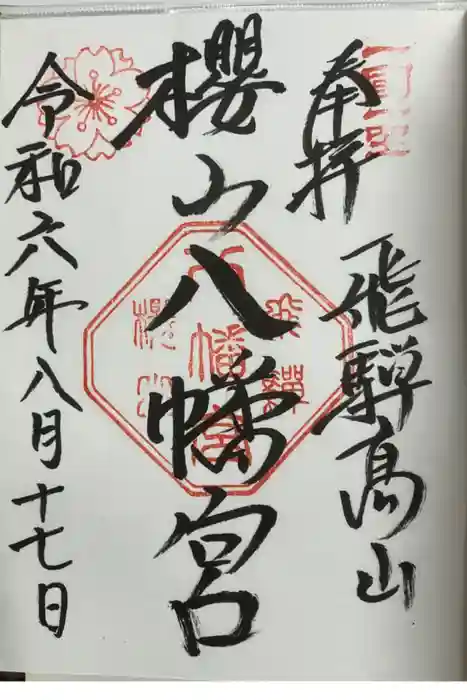 奉拝
飛騨高山
櫻山八幡宮
八幡宮
飛騨
櫻山
令和六年八月十七日